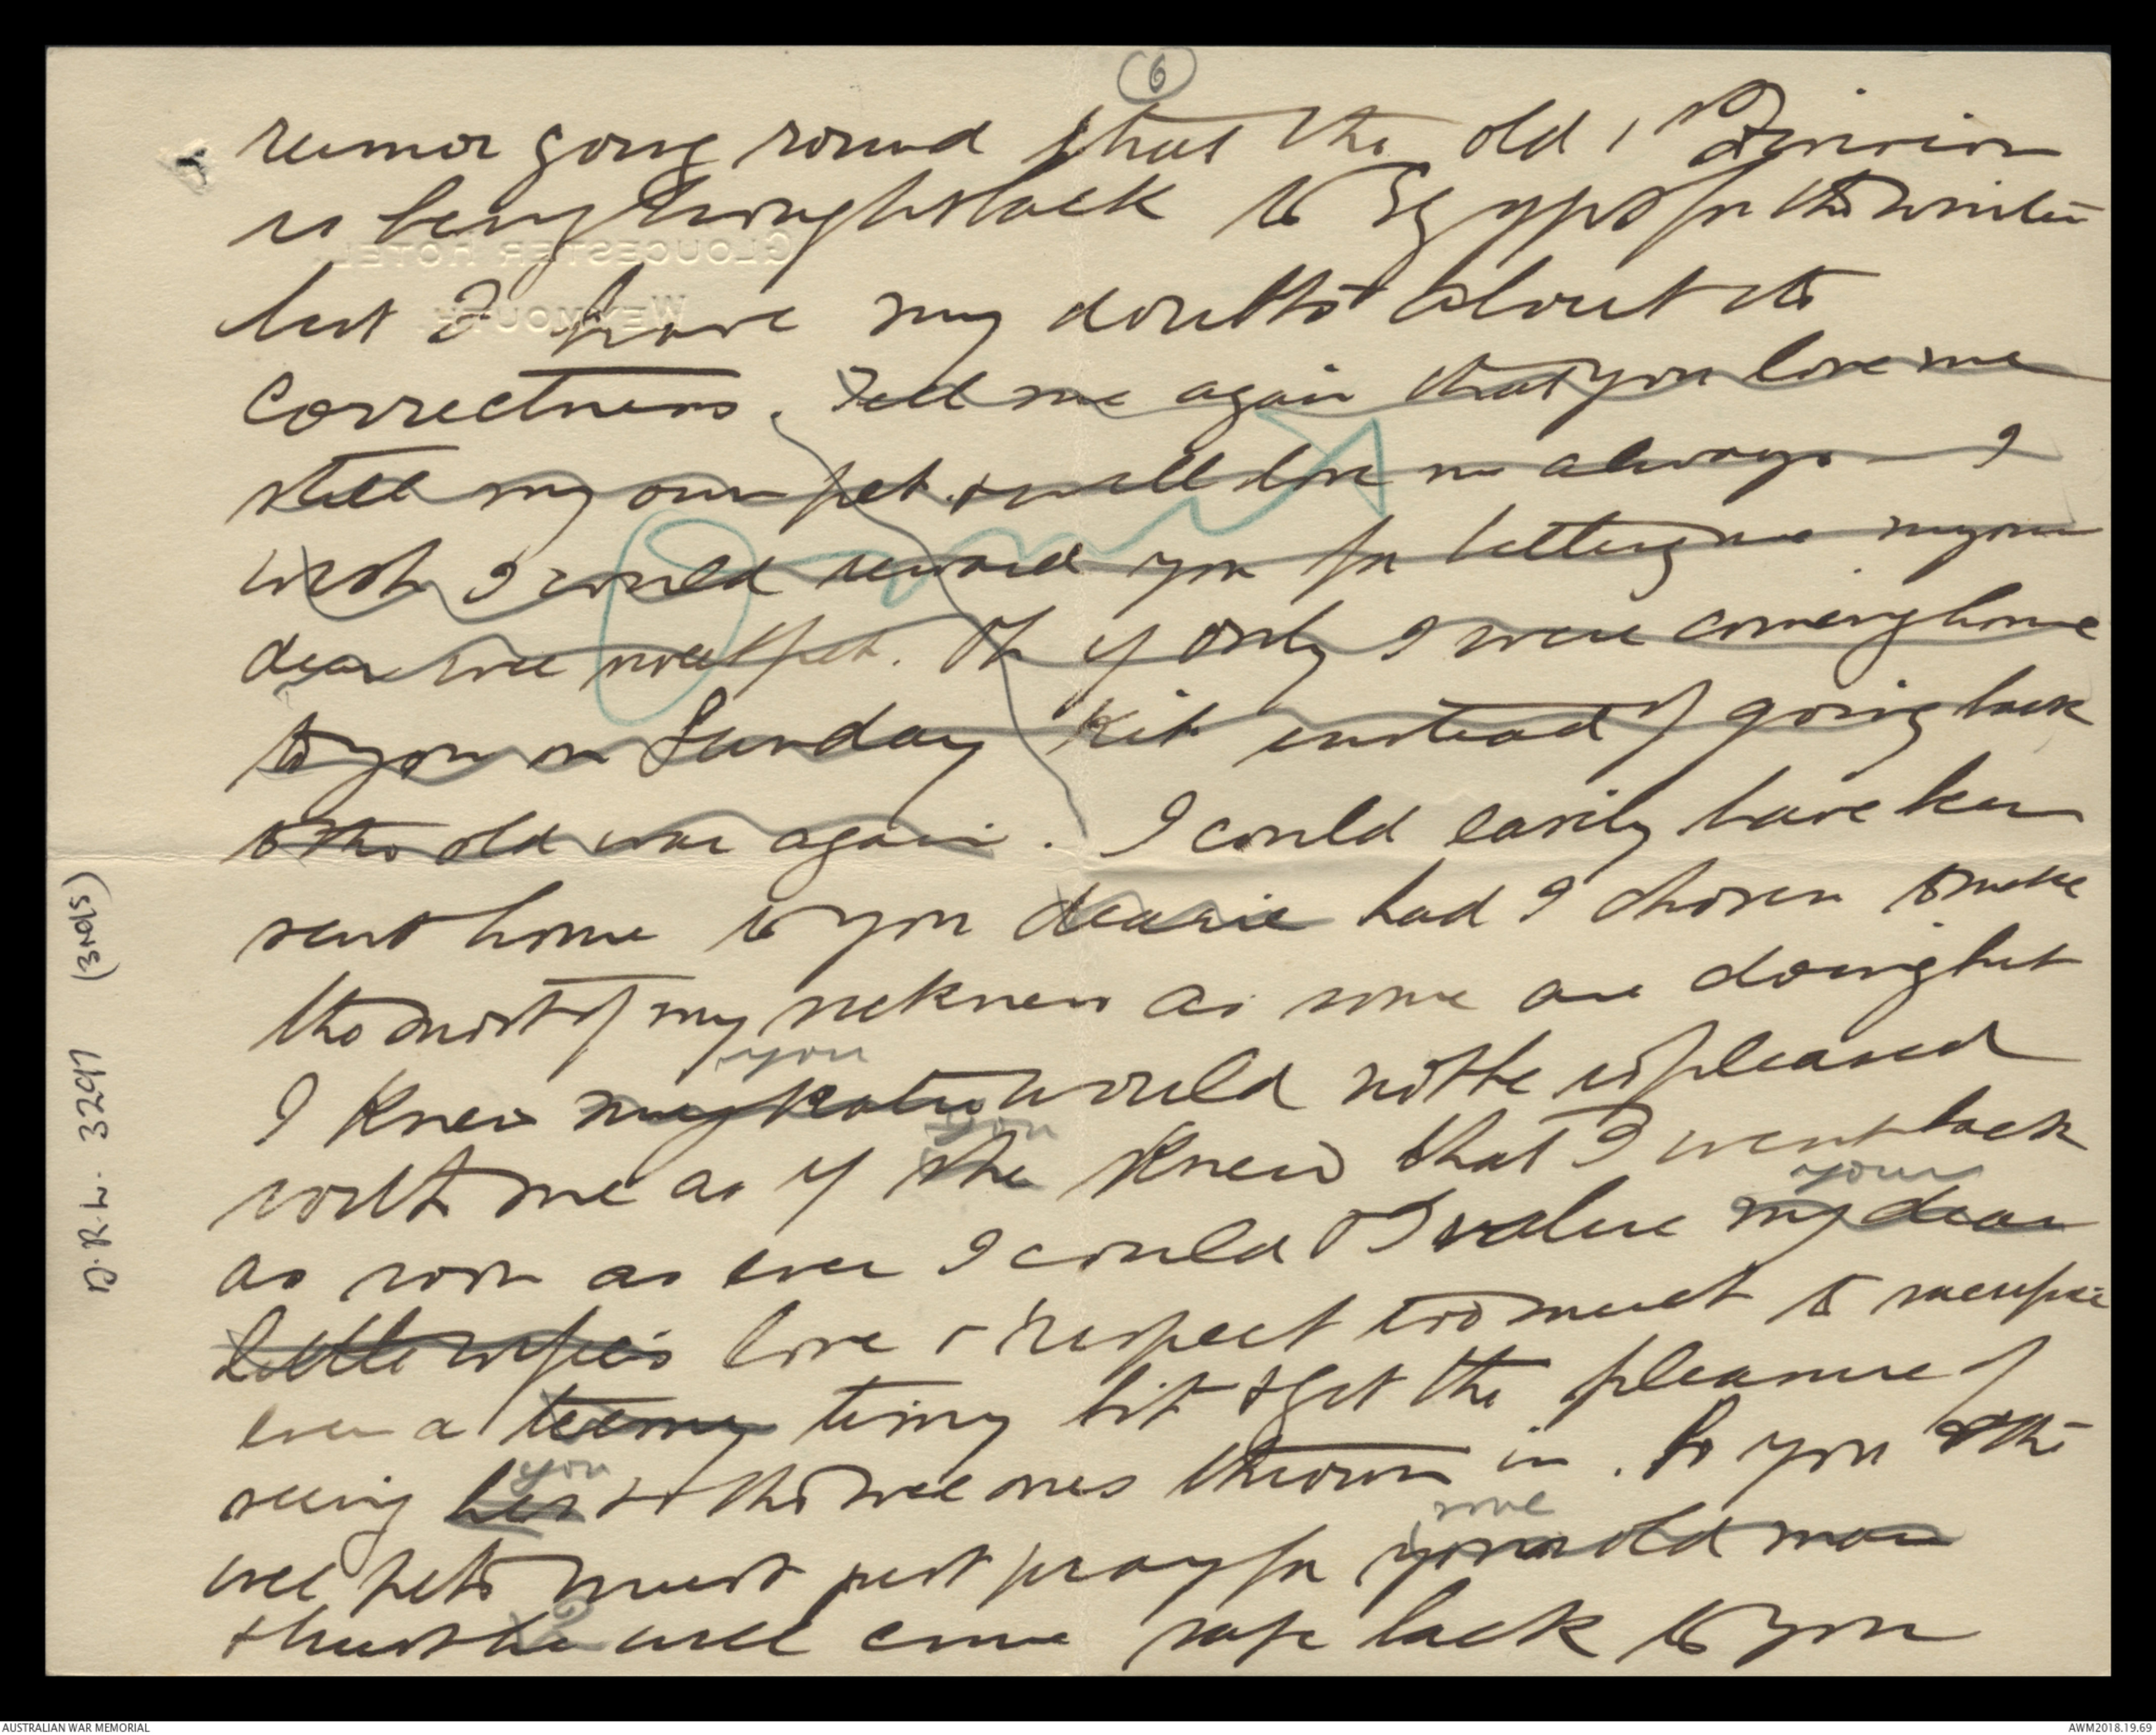 6
rumor going round that the old 1st Division
is being brought back to Egypt for the winter
but I have my doubts about its
correctness. Tell me again that you love me
still my own pet & will love me always — I
wish I could reward you for letting me my own
dear wee sweet pet. Oh if only I were coming home
to you on Sunday Kit instead of going back
to the old war again. I could easily have been
sent home to you dearie had I chosen to make
the most of my sickness as some are doing but
you
I knew my Katie would not be so pleased
you
with me as if she knew that I went back
your
as soon as ever I could & I value my dear
little wifie's love & respect too much to sacrifice
even a teeny tiny bit & get the pleasure of
you
seeing her & the wee ones thrown in. So you & the
me
wee pets must just pray for your old man
I
& trust he will come safe back to you
Omit
D.R.L. 3297 (3rd/5)
GLOUCESTER HOTEL.
WEYMOUTH.
AUSTRALIAN WAR MEMORIAL
AWM2018.19.69